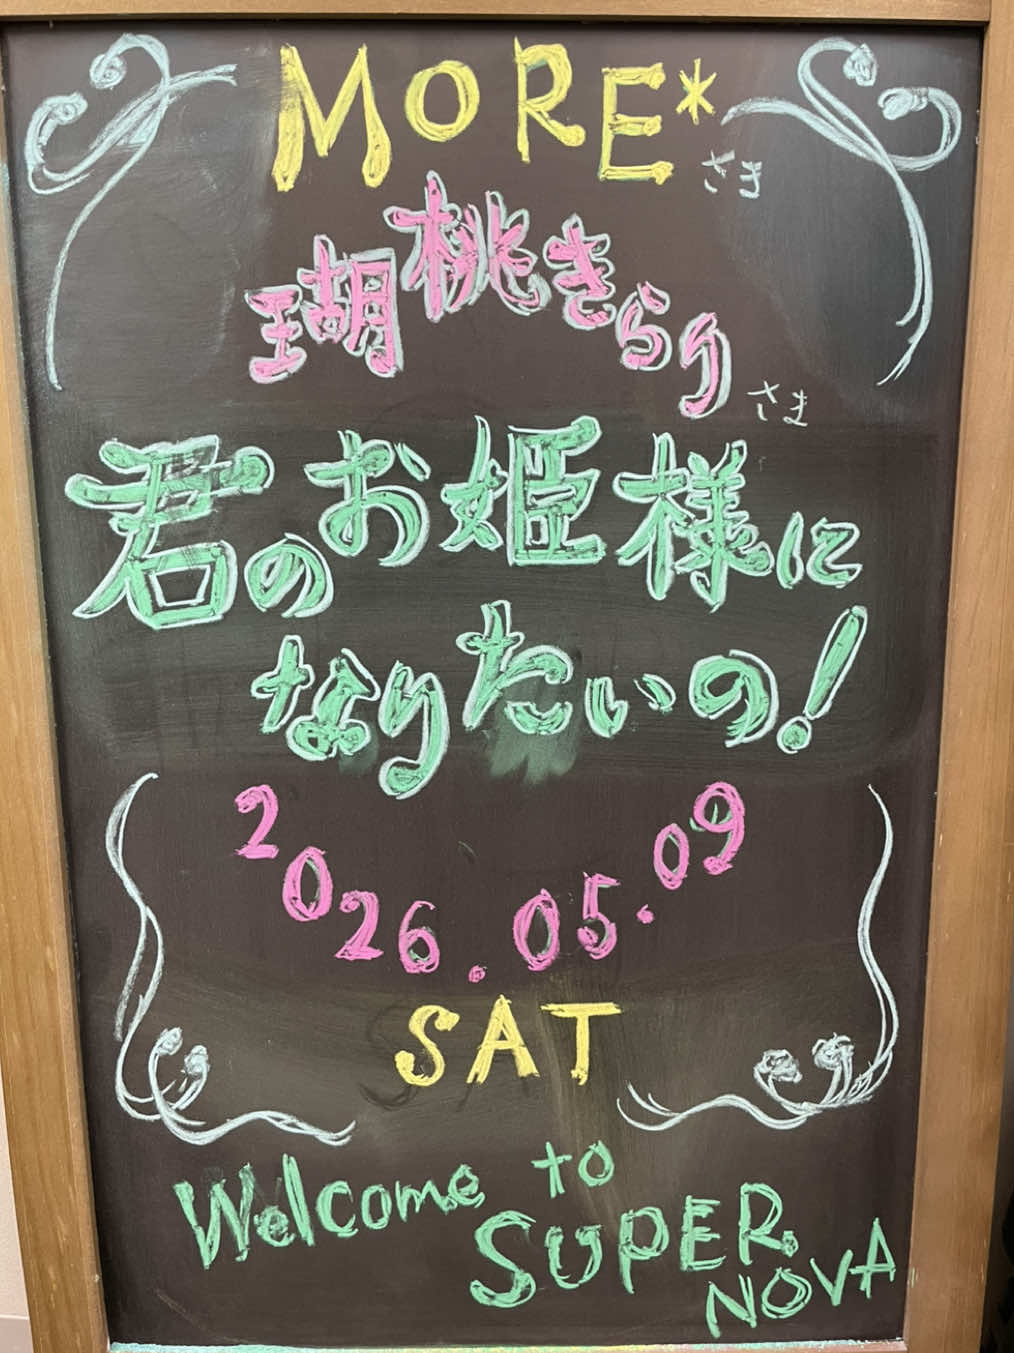 MORE*さま
瑚桃きらりさま
君のお姫様に
なりたいの!
2026.05.09
SAT
Welcome to
SUPER
NOVA